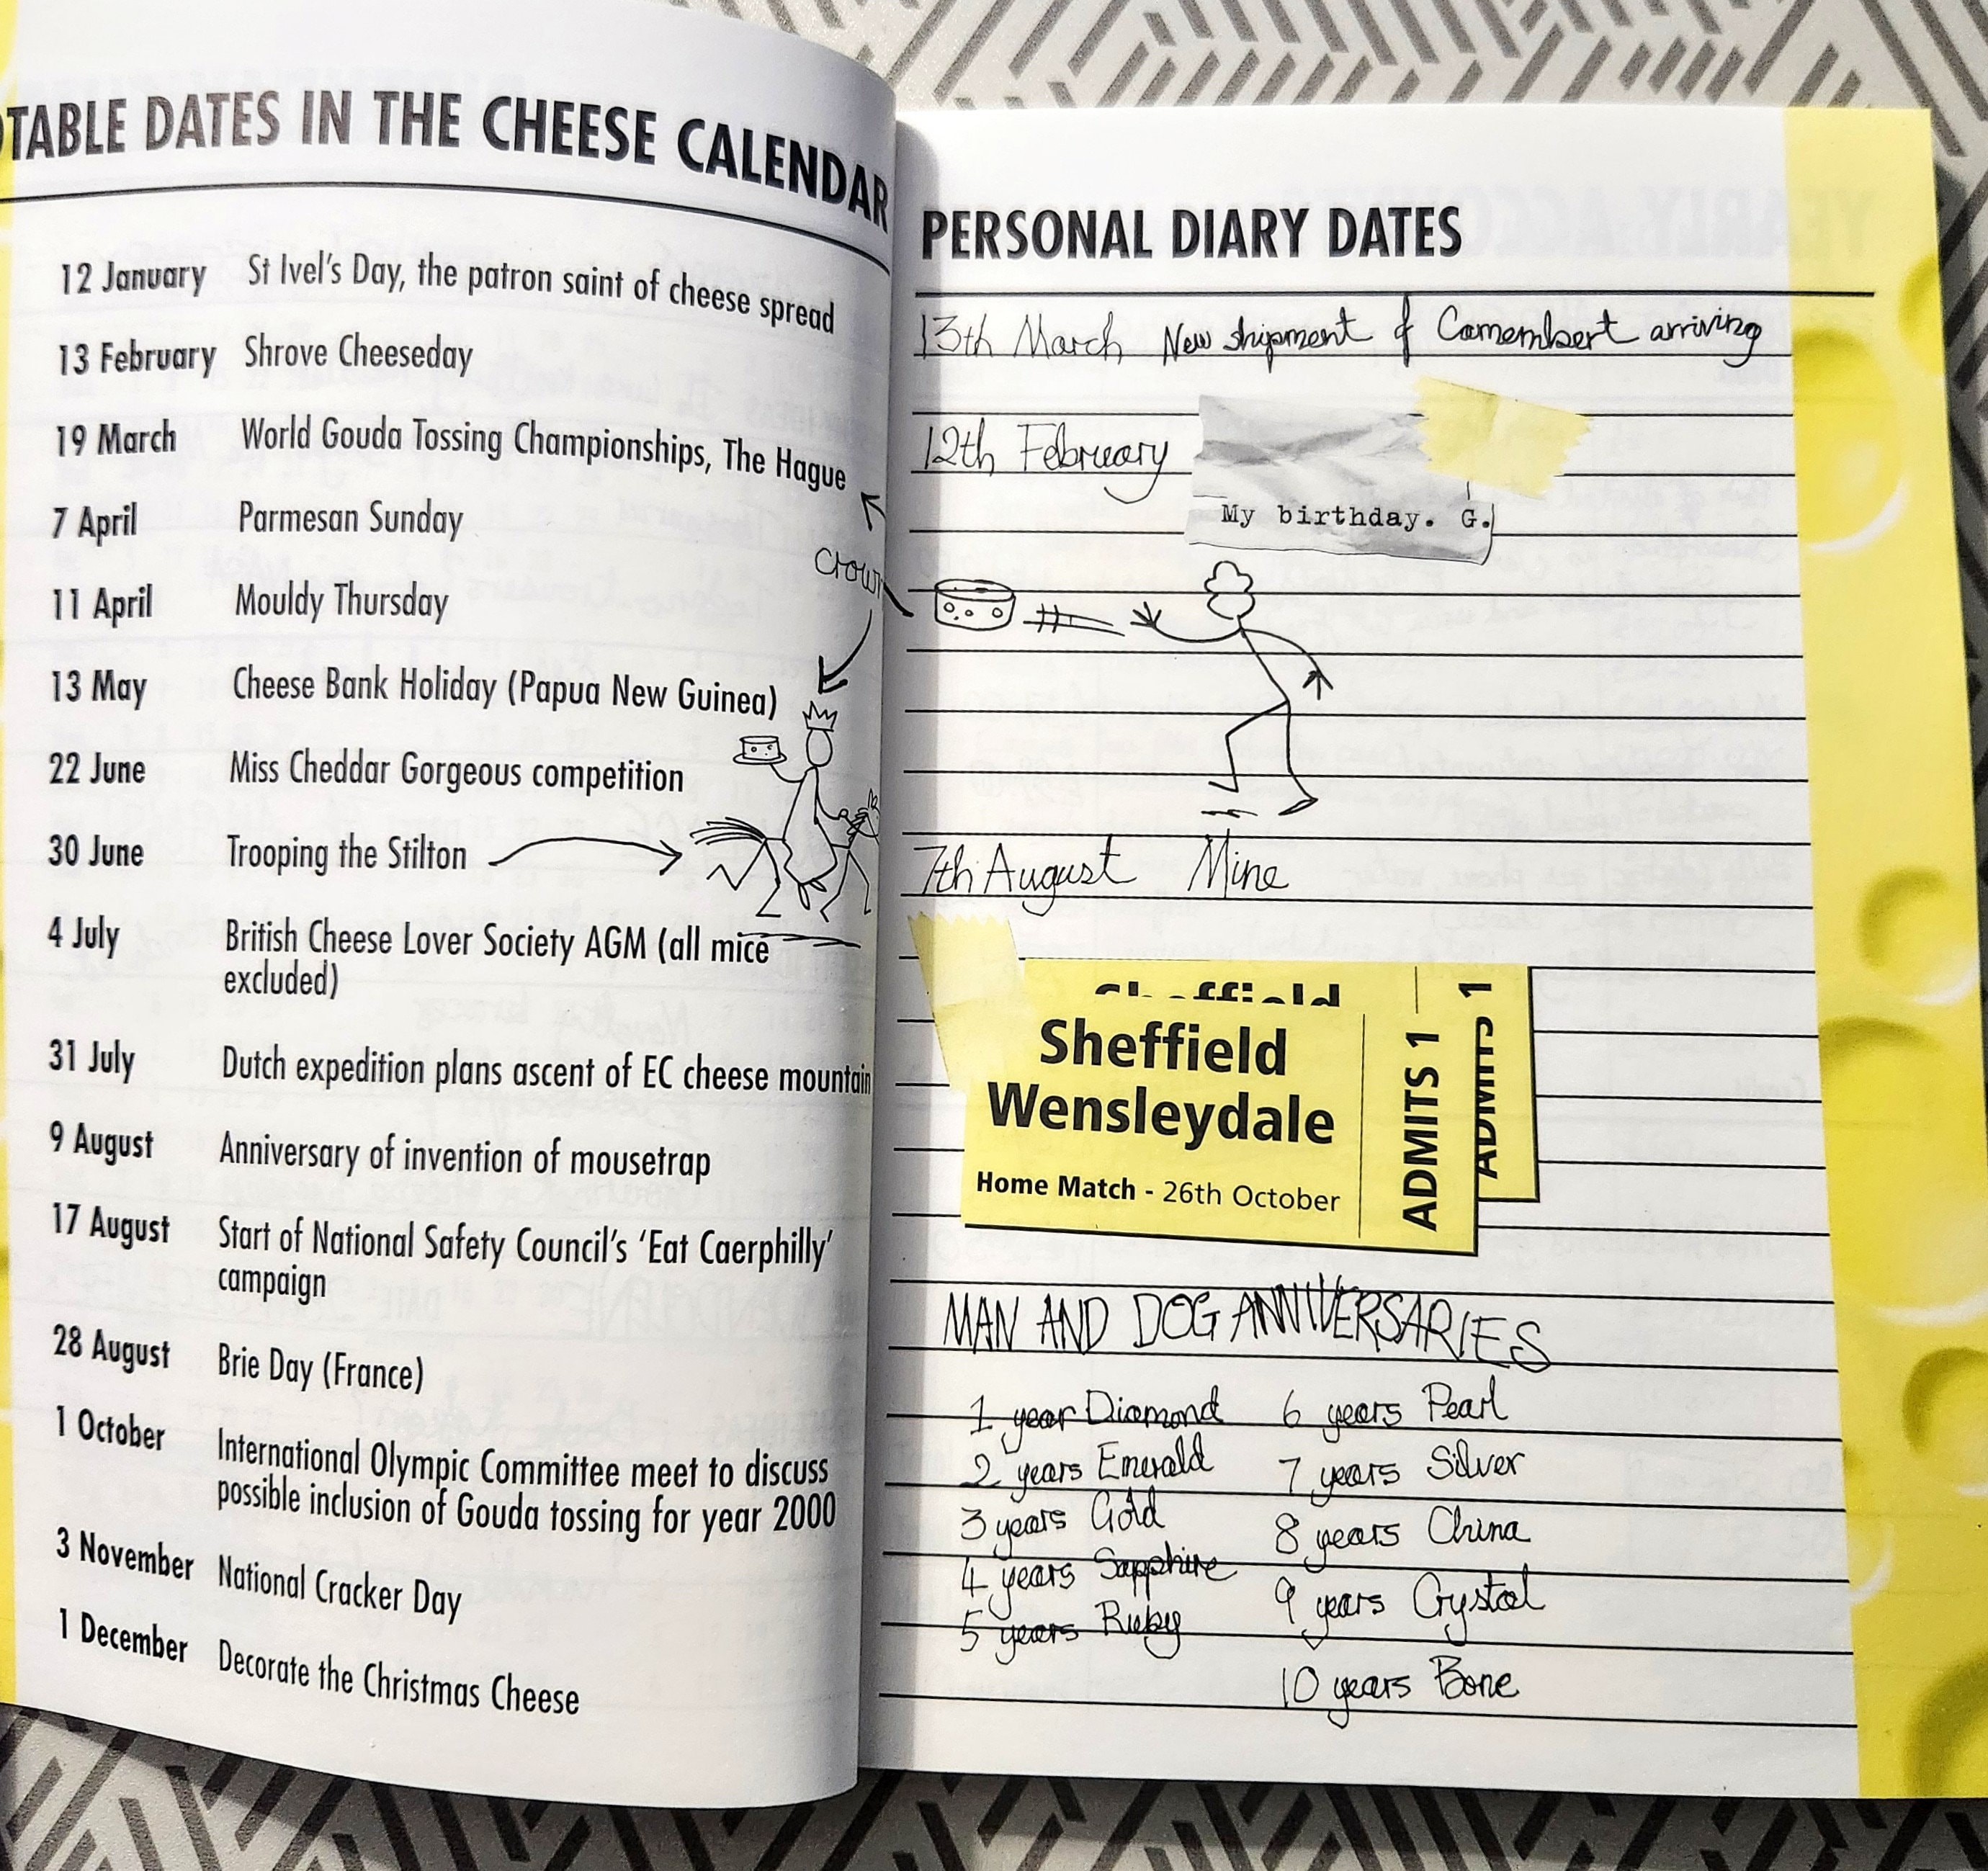 TABLE DATES IN THE CHEESE CALENDAR
12 January St Ivel's Day, the patron saint of cheese spread
13 February Shrove Cheeseday
19 March World Gouda Tossing Championships, The Hague
7 April Parmesan Sunday
11 April Mouldy Thursday
13 May Cheese Bank Holiday (Papua New Guinea)
22 June Miss Cheddar Gorgeous competition
30 June Trooping the Stilton
4 July British Cheese Lover Society AGM (all mice
excluded)
31 July Dutch expedition plans ascent of EC cheese mountain
9 August Anniversary of invention of mousetrap
17 August Start of National Safety Council's 'Eat Caerphilly'
campaign
28 August Brie Day (France)
1 October International Olympic Committee meet to discuss
possible inclusion of Gouda tossing for year 2000
3 November National Cracker Day
1 December Decorate the Christmas Cheese
PERSONAL DIARY DATES
13th March New shipment of Camembert arriving
12th February
My birthday. G.
7th August Mine
Sheffield
ADMITS 1
Sheffield
Wensleydale
Home Match - 26th October
ADMITS 1
MAN AND DOG ANNIVERSARIES
1 year Diamond 6 years Pearl
2 years Emerald 7 years Silver
3 years Gold 8 years China
4 years Sapphire 9 years Crystal
5 years Ruby 10 years Bone